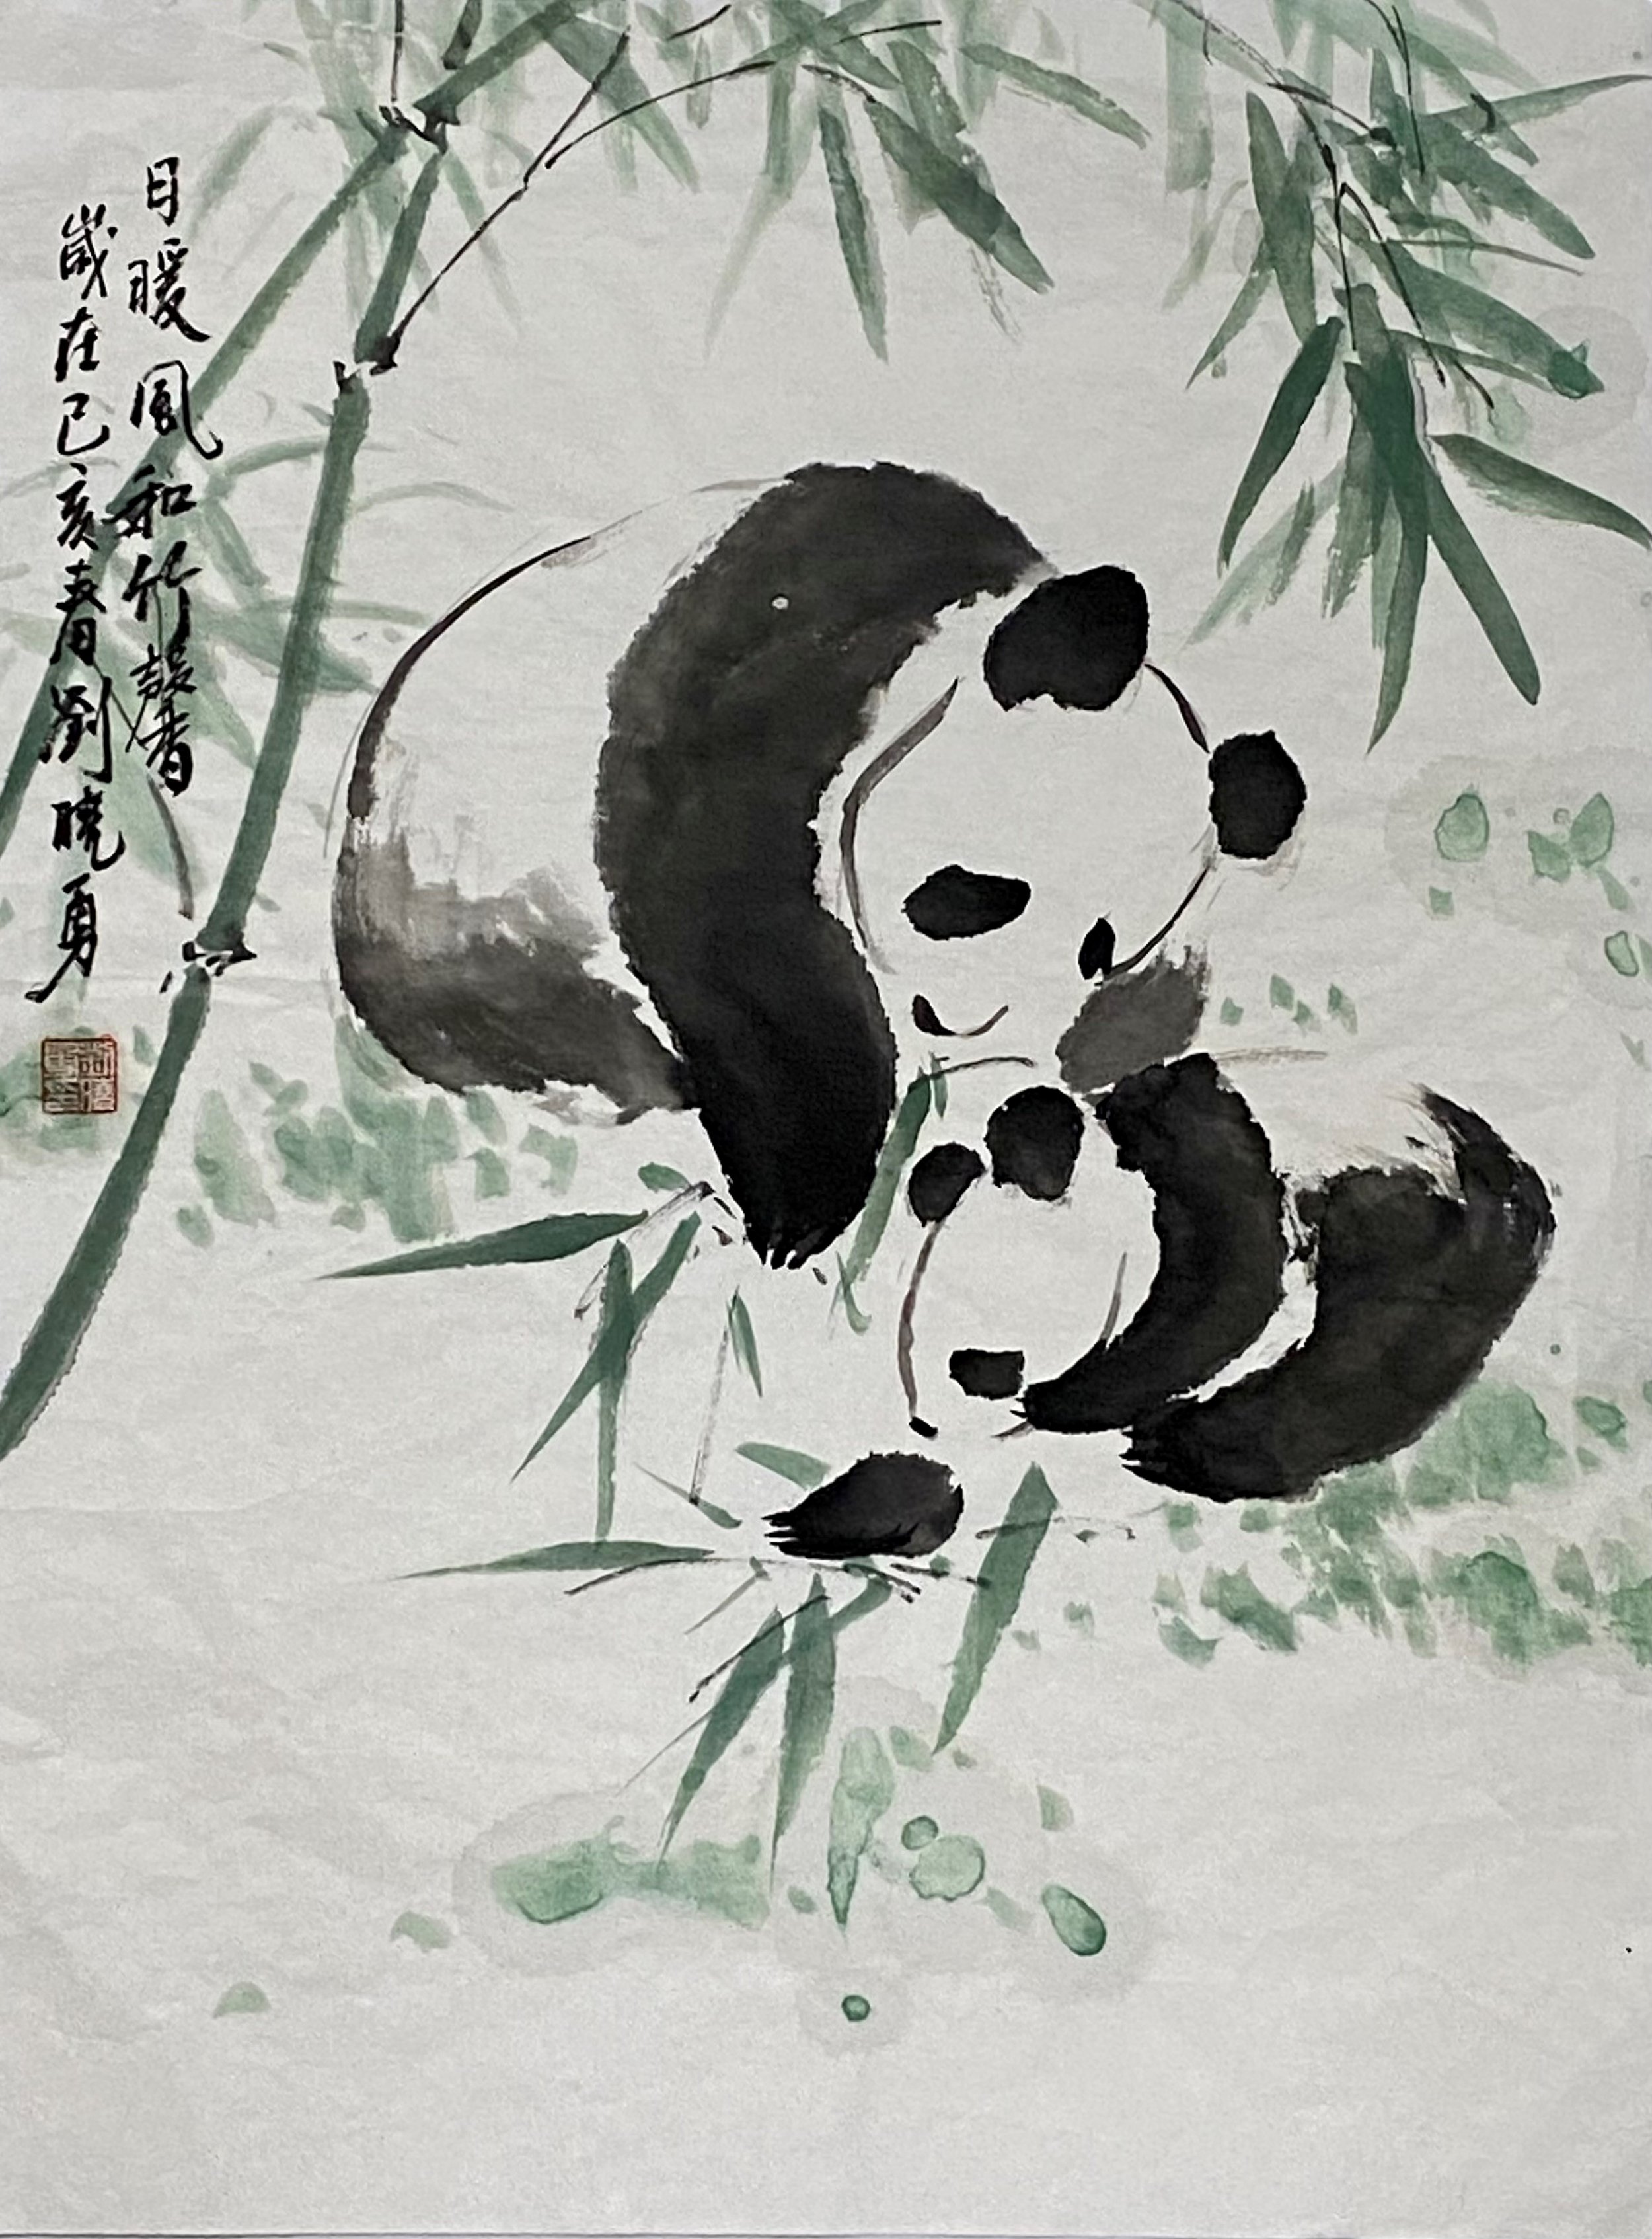 日暖風和竹馨香
歲在己亥春劉曉勇